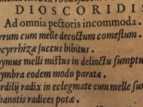 DIOSCORIDIS
Ad omnia pectoris incommoda.
rum cum melle decoctum comestum.
cyrrhiza succus bibitur.
ymus melli mistus in delinctu sumptu
ymbra eodem modo parata.
rdilij radix in eclegmate cum melle su
hanotis radices potæ.